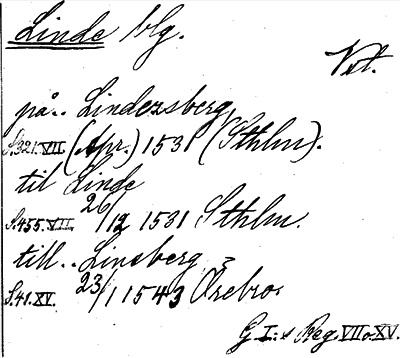 Linde blg.
Vst.
på.. Lindersberg
S.321.VII. (Apr.) 1531 (Sthlm).
til Linde
S.455.VII. 26/12 1531 Sthlm.
till.. Linsberg
S.41.XV. 23/1 1543 Örebro.
G. I:s Reg. VII o. XV.